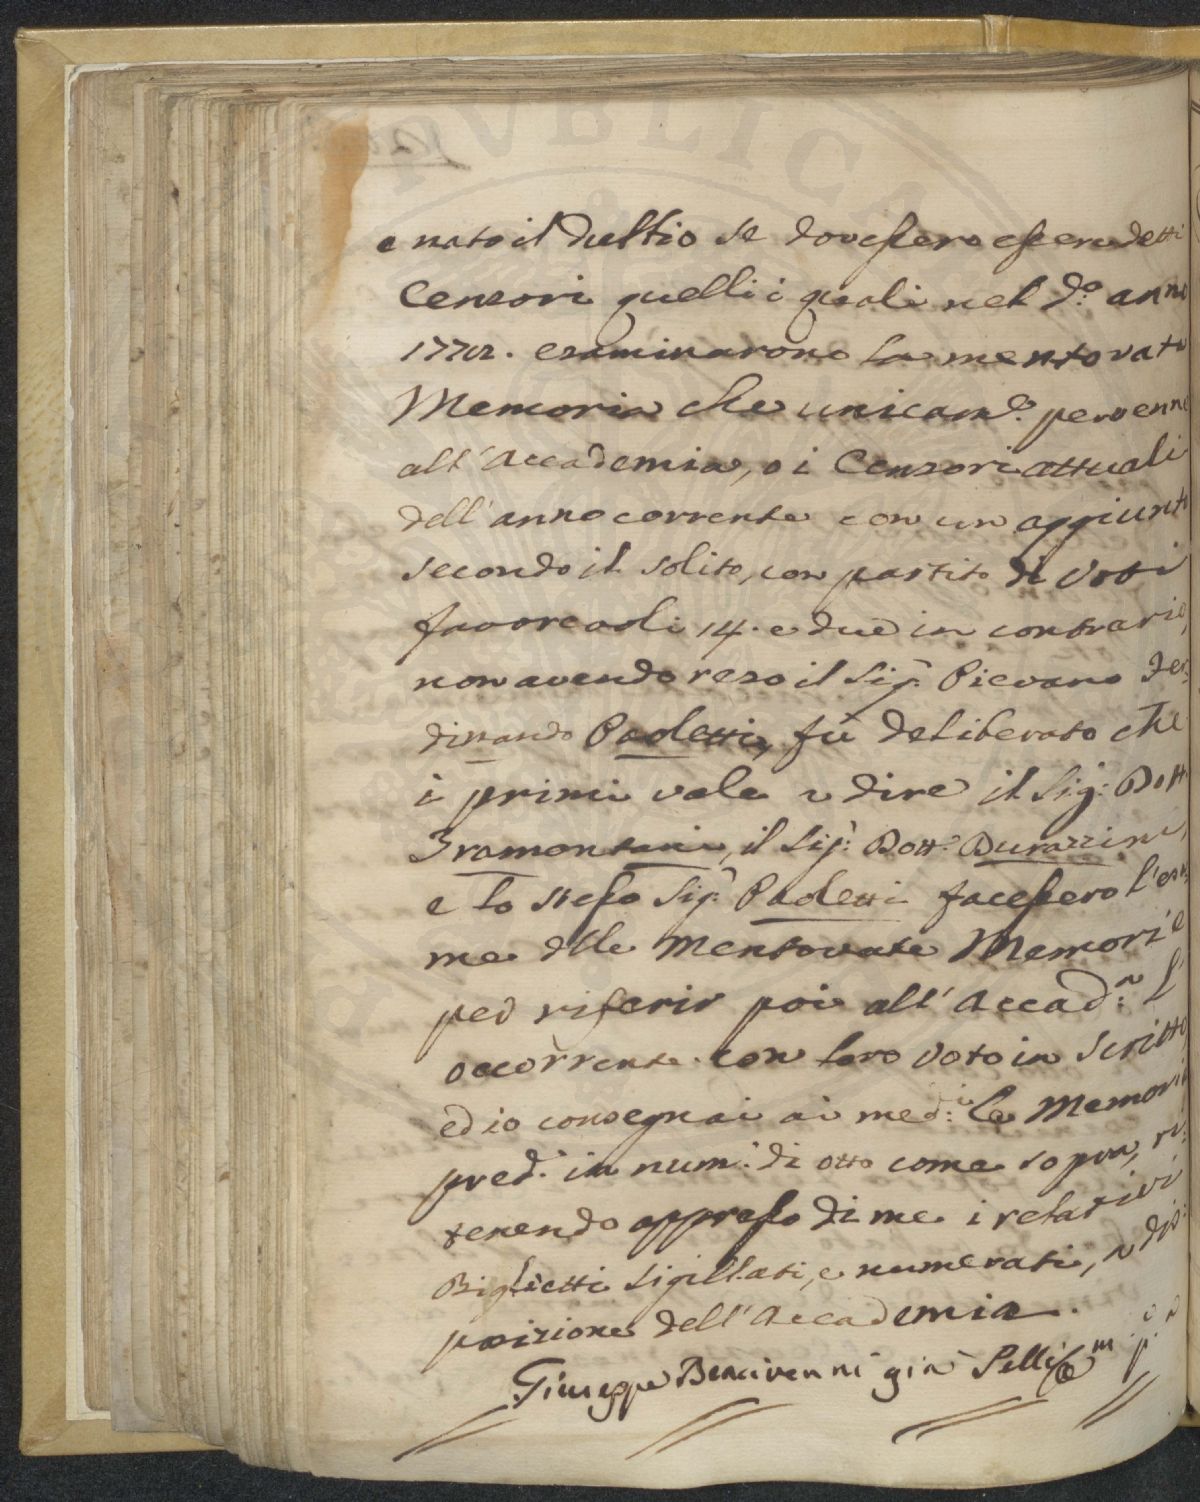 e nato il dubbio se dovessero essere detti
Censori quelli i quali nel d.o anno
1772. esaminarono la mentovata
Memoria che unicam.e pervenne
all'Accademia, o i Censori attuali
dell'anno corrente con un aggiunto
secondo il solito, con partito di Voti
favorevoli 14. e due in contrario,
non avendo reso il Sig.r Pievano Fer:
dinando Paoletti, fù deliberato che
i primi vale a dire il Sig: Dott
Tramontani, il Sig.r Dott.r Durazzini,
e lo stesso Sig.r Paoletti facessero l'esa:
me delle mentovate Memorie
per riferir poi all'Accad.a l'
occorrente con loro Voto in Scritto
ed io consegnai ai med:i le Memorie
pred.e in num: di otto come sopra, ri:
tenendo appresso di me i relativi
Biglietti sigillati, e numerati, a dis:
posizione dell'Accademia.
Giuseppe Bencivenni già Pelli
PUBLICA